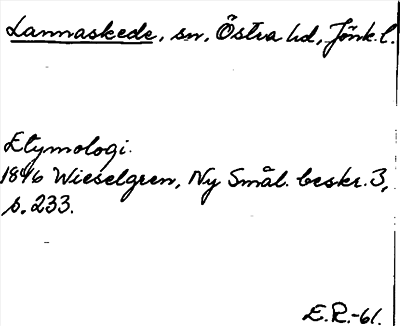 Lannaskede, sn, Östra hd, Jönk.l.
Etymologi.
1846 Wieselgren, Ny Smål. beskr. 3,
s. 233.
E.R.-61.